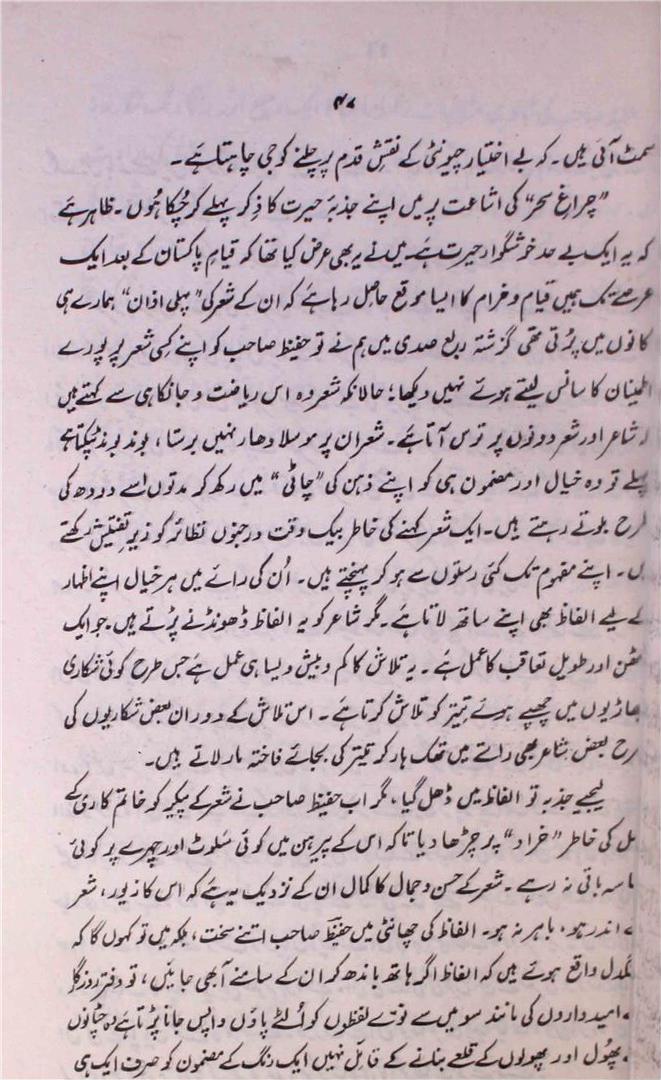 ۴۷
سمٹ آئی ہیں۔ کہ بے اختیار چیونٹی کے نقشِ قدم پر چلنے کو جی چاہتا ہے۔
"چراغِ سحر" کی اشاعت پر میں اپنے جذبۂ حیرت کا ذِکر پہلے کر چُکا ہُوں۔ ظاہر ہے
کہ یہ ایک بے حد خوشگوار حیرت ہے۔ میں نے یہ بھی عرض کیا تھا کہ قیامِ پاکستان کے بعد ایک
عرصے تک ہمیں قیام و خرام کا ایسا موقع حاصل رہا ہے کہ ان کے شعر کی "پہلی اذان" ہمارے ہی
کانوں میں پڑتی تھی گزشتہ ربع صدی میں ہم نے تو حفیظ صاحب کو اپنے کِسی شعر پر پورے
اطمینان کا سانس لیتے ہوئے نہیں دیکھا؛ حالانکہ شعر وہ اس ریاضت و جانکاہی سے کہتے ہیں
شاعر اور شعر دونوں پر ترس آتا ہے۔ شعر ان پر موسلا دھار نہیں برستا، بوند بوند ٹپکتا ہے
پہلے تو وہ خیال اور مضمون ہی کو اپنے ذہن کی "چاٹی" میں رکھ کر مدتوں اسے دودھ کی
طرح بلوتے رہتے ہیں۔ ایک شعر کہنے کی خاطر بیک وقت درجنوں نظائر کو زیرِ تفتیش رکھتے
ہیں۔ اپنے مفہوم تک کئی رستوں سے ہو کر پہنچتے ہیں۔ اُن کی رائے میں ہر خیال اپنے اظہار
کے لیے الفاظ بھی اپنے ساتھ لاتا ہے۔ مگر شاعر کو یہ الفاظ ڈھونڈنے پڑتے ہیں۔ جو ایک
کٹھن اور طویل تعاقب کا عمل ہے۔ یہ تلاش کا کم و بیش ویسا ہی عمل ہے جس طرح کوئی شکاری
جھاڑیوں میں چھپے ہوئے تیتر کو تلاش کرتا ہے۔ اس تلاش کے دوران بعض شکاریوں کی
طرح بعض شاعر بھی راستے میں تھک ہار کر تیتر کی بجائے فاختہ مار لاتے ہیں۔
لیجیے جذبہ تو الفاظ میں ڈھل گیا، مگر اب حفیظ صاحب نے شعر کے پیکر کو خاتم کاری کے
عمل کی خاطر "خراد" پر چڑھا دیا تاکہ اس کے پیرہن میں کوئی سَلوٹ اور چہرے پر کوئی
باقی نہ رہے۔ شعر کے حسن و جمال کا کمال ان کے نزدیک یہ ہے کہ اس کا زیور، شعر
کے اندر ہو، باہر نہ ہو۔ الفاظ کی چھانٹی میں حفیظ صاحب اتنے سخت، بلکہ میں تو کہوں گا کہ
سنگدل واقع ہوئے ہیں کہ الفاظ اگر ہاتھ باندھ کر ان کے سامنے آ بھی جائیں، تو دفترِ روزگار
کے امیدواروں کی مانند سو میں سے نوے لفظوں کو اُلٹے پاؤں واپس جانا پڑتا ہے وہ چٹانوں
پھُول اور پھولوں کے قلعے بنانے کے قائل نہیں ایک رنگ کے مضمون کو صرف ایک ہی